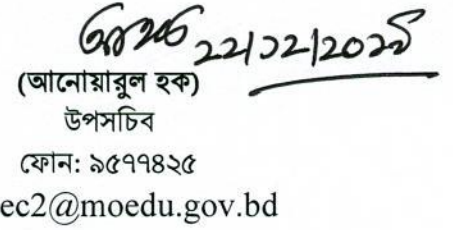 ২২/১২/২০১৯
(আনোয়ারুল হক)
উপসচিব
ফোন: ৯৫৭৭৪২৫
ec2@moedu.gov.bd